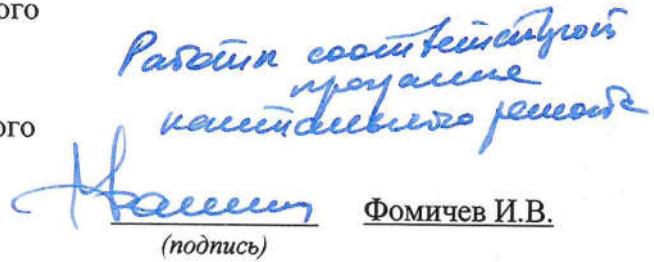 ого
Работы соответствуют
программе
ого
капитального ремонта
Фомичев И.В.
(подпись)